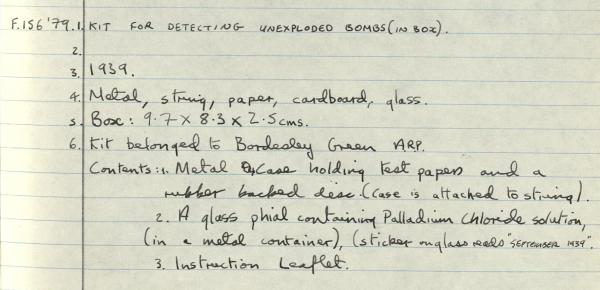 F.156'79.1. KIT FOR DETECTING UNEXPLODED BOMBS (IN BOX).
2.
3. 1939.
4. Metal, string, paper, cardboard, glass.
5. Box: 9.7 x 8.3 x 2.5cms.
6. Kit belonged to Bordesley Green ARP.
Contents: 1. Metal Case holding test papers and a
rubber backed disc. (Case is attached to string).
2. A glass phial containing Palladium Chloride solution,
(in a metal container), (sticker on glass reads "SEPTEMBER 1939".
3. Instruction Leaflet.